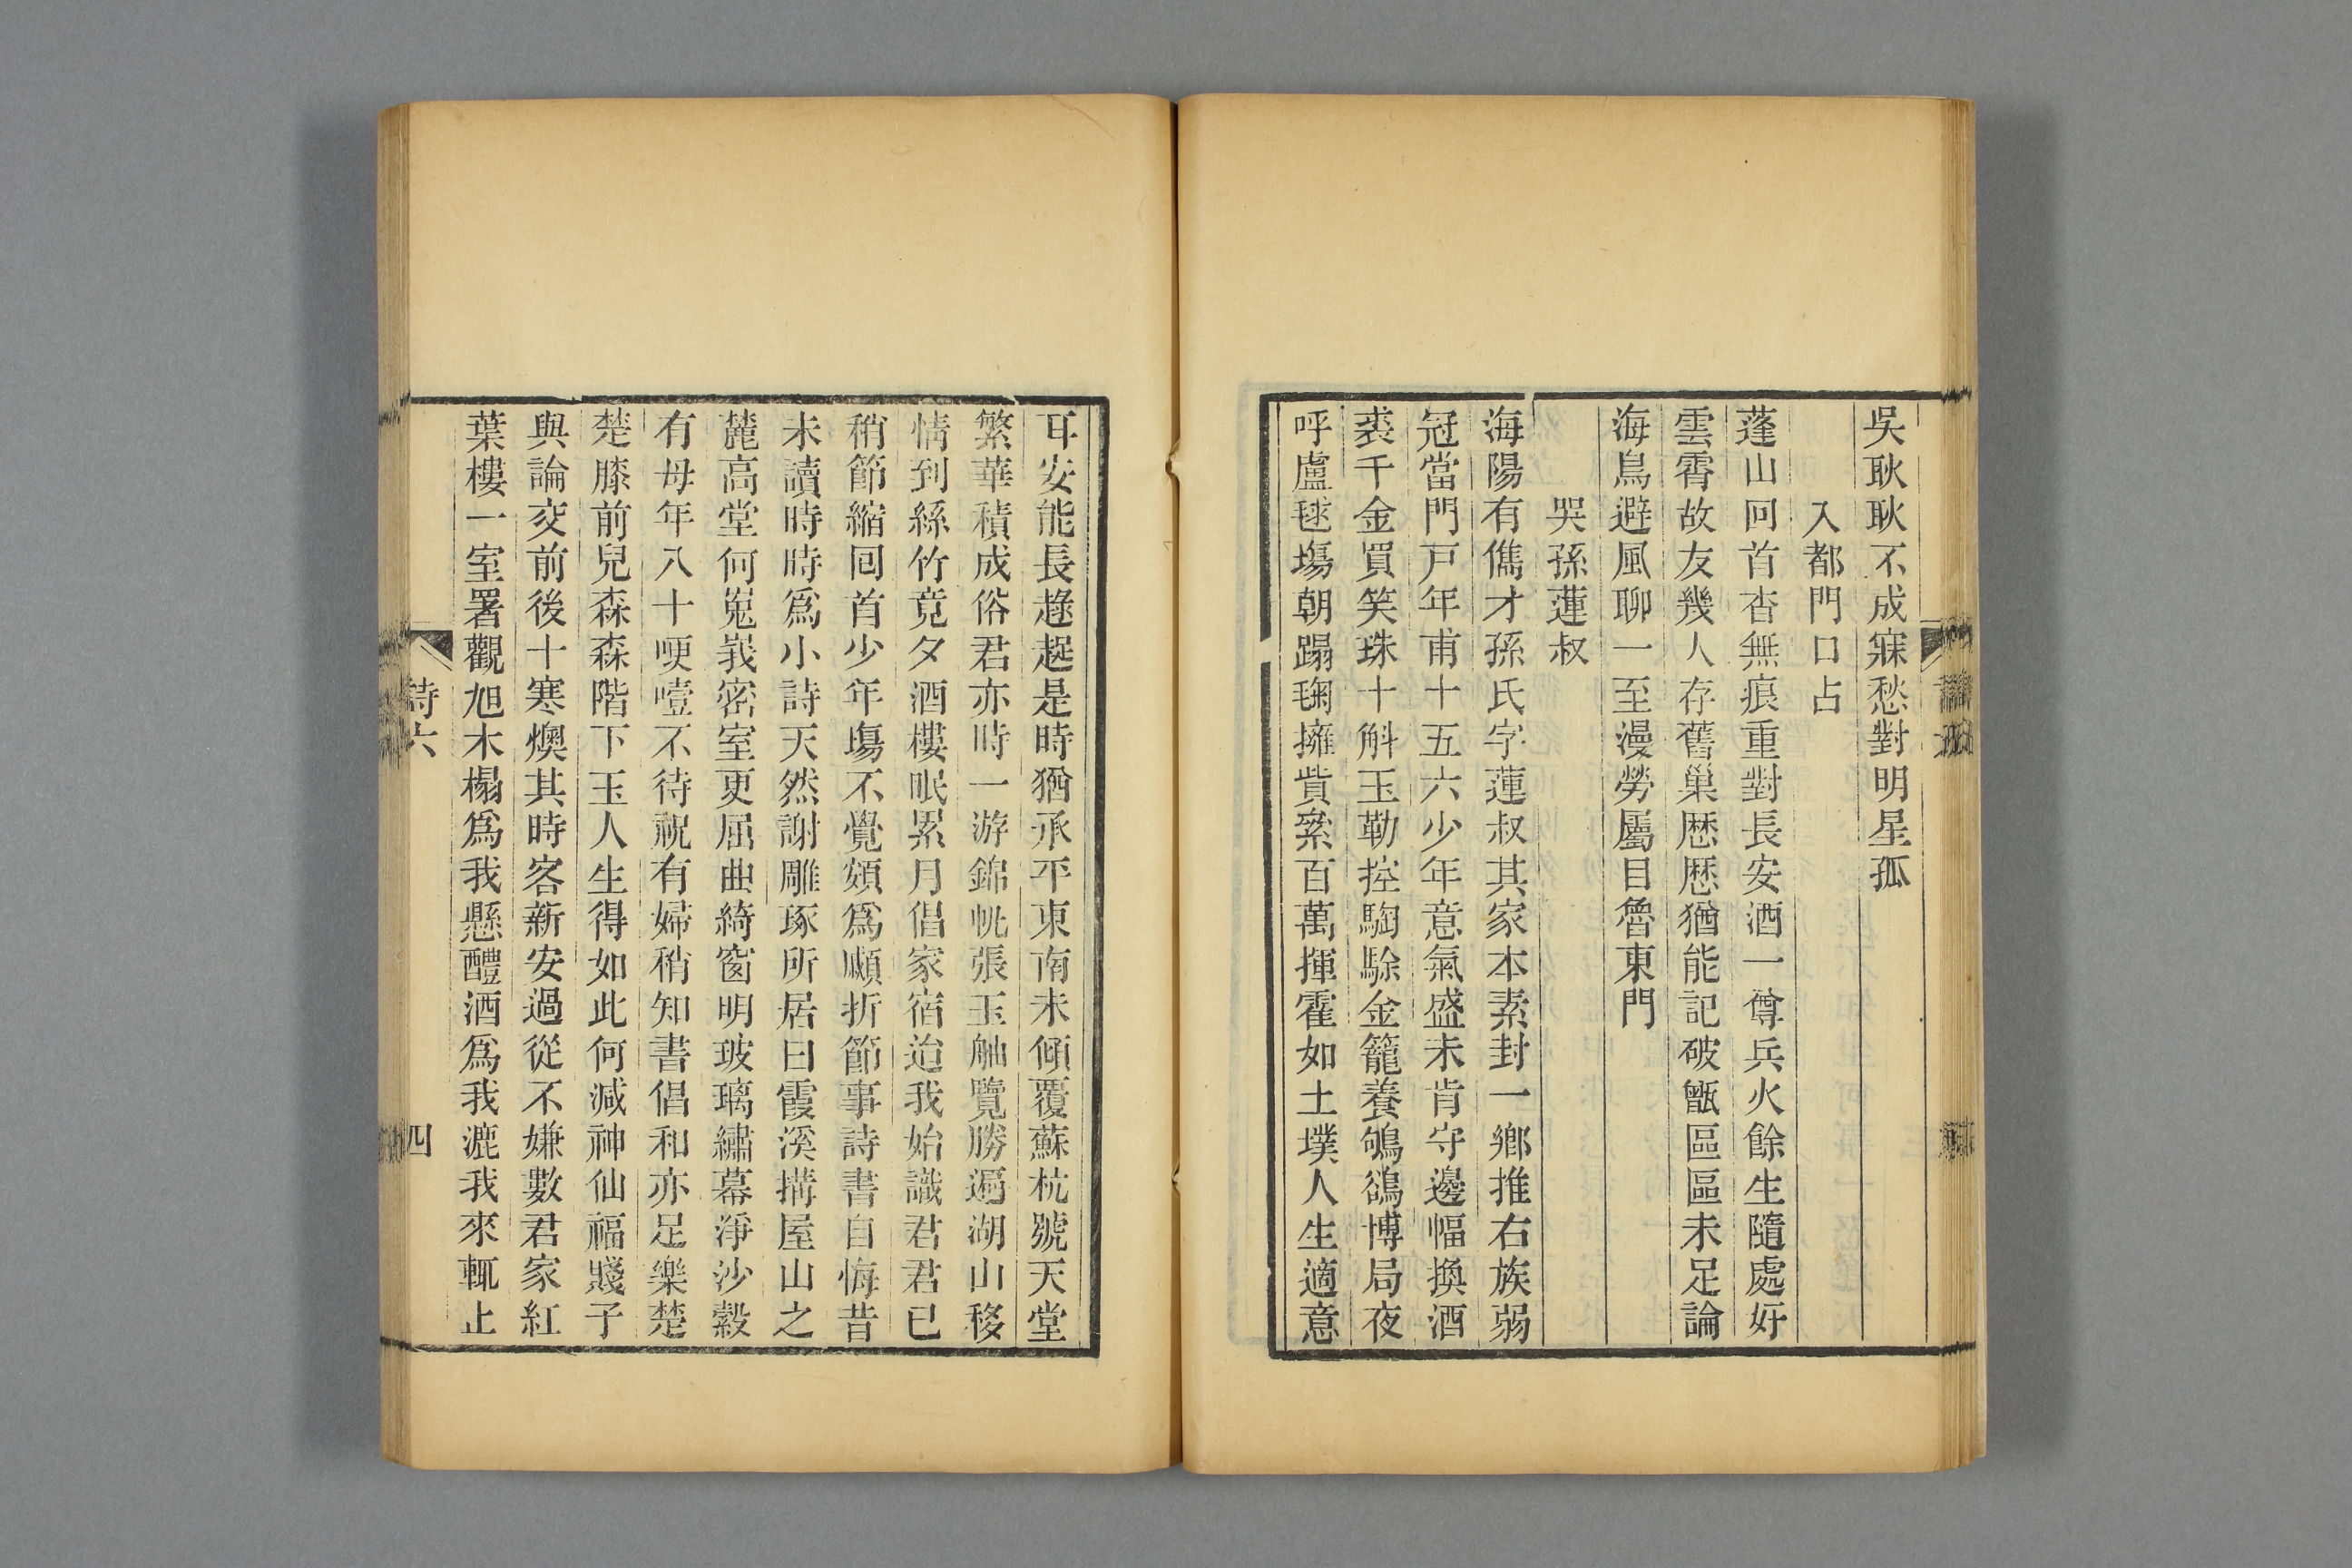 吳耿耿不成寐愁對明星孤
入都門口占
蓬山回首杳無痕重對長安酒一尊兵火餘生隨處好
雲霄故友幾人存舊巢歴歴猶能記破甑區區未足論
海鳥避風聊一至漫勞屬目魯東門
哭孫蓮叔
海陽有儁才孫氏字蓮叔其家本素封一鄉推右族弱
冠當門戸年甫十五六少年意氣盛未肯守邊幅換酒
裘千金買笑珠十斛玉勒控騊駼金籠養鴝鵒博局夜
呼盧毬塲朝蹋鞠擁貲纍百萬揮霍如土墣人生適意
耳安能長趢趗是時猶承平東南未傾覆蘇杭號天堂
繁華積成俗君亦時一游錦帆張玉舳覽勝遍湖山移
情到絲竹竟夕酒樓眠累月倡家宿迨我始識君君已
稍節縮囘首少年塲不覺頞爲顣折節事詩書自悔昔
未讀時時爲小詩天然謝雕琢所居曰霞溪搆屋山之
麓高堂何嵬峩密室更屈曲綺窗明玻璃繡幕淨沙縠
有母年八十哽噎不待祝有婦稍知書倡和亦足樂楚
楚膝前兒森森階下玉人生得如此何減神仙福賤子
與論交前後十寒燠其時客新安過從不嫌數君家紅
葉樓一室署觀旭木榻爲我懸醴酒爲我漉我來輒止
詩六
四